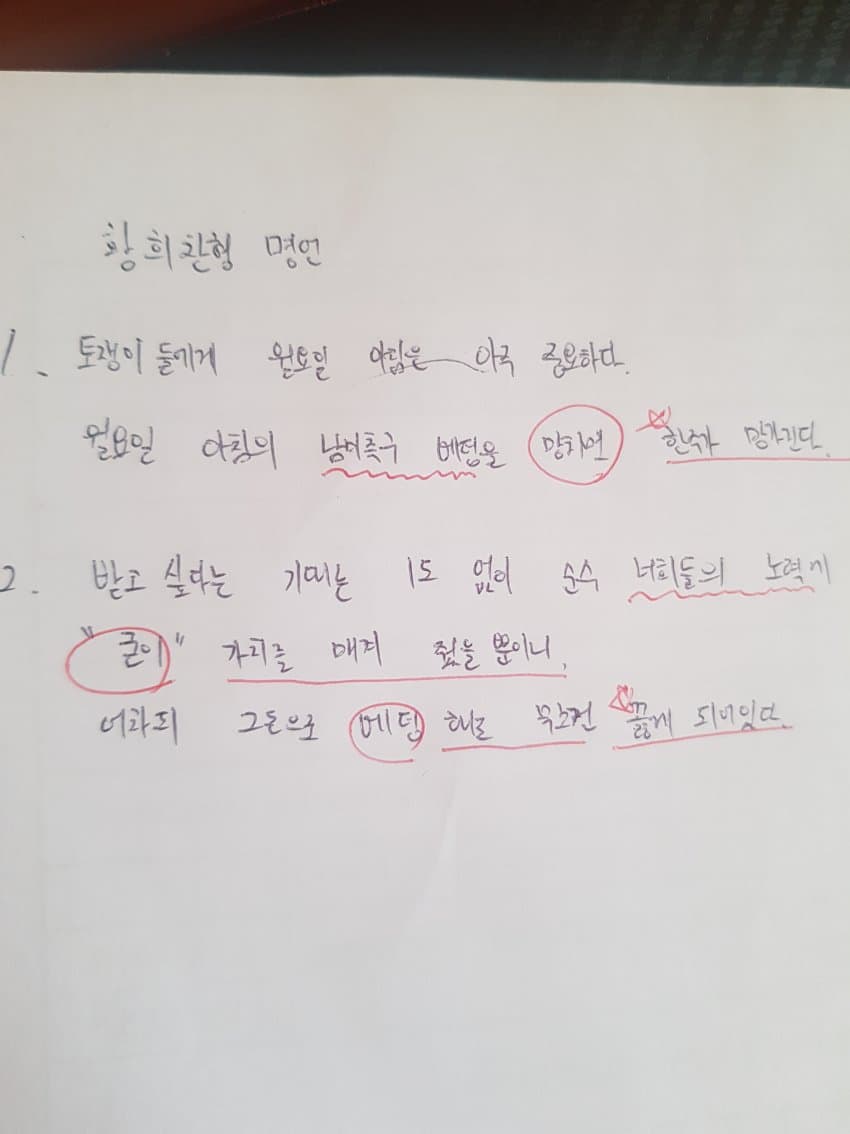 황희찬형 명언
1. 토쟁이 들에게 월요일 아침은 아주 중요하다.
월요일 아침의 남미축구 베팅을 망치면 한주가 망가진다.
2. 받고 싶다는 기대는 1도 없이 순수 너희들의 노력에
"굳이" 가치를 매겨 줬을 뿐이니,
어차피 그돈으로 베팅 해도 무조건 꼻게 되어있다.